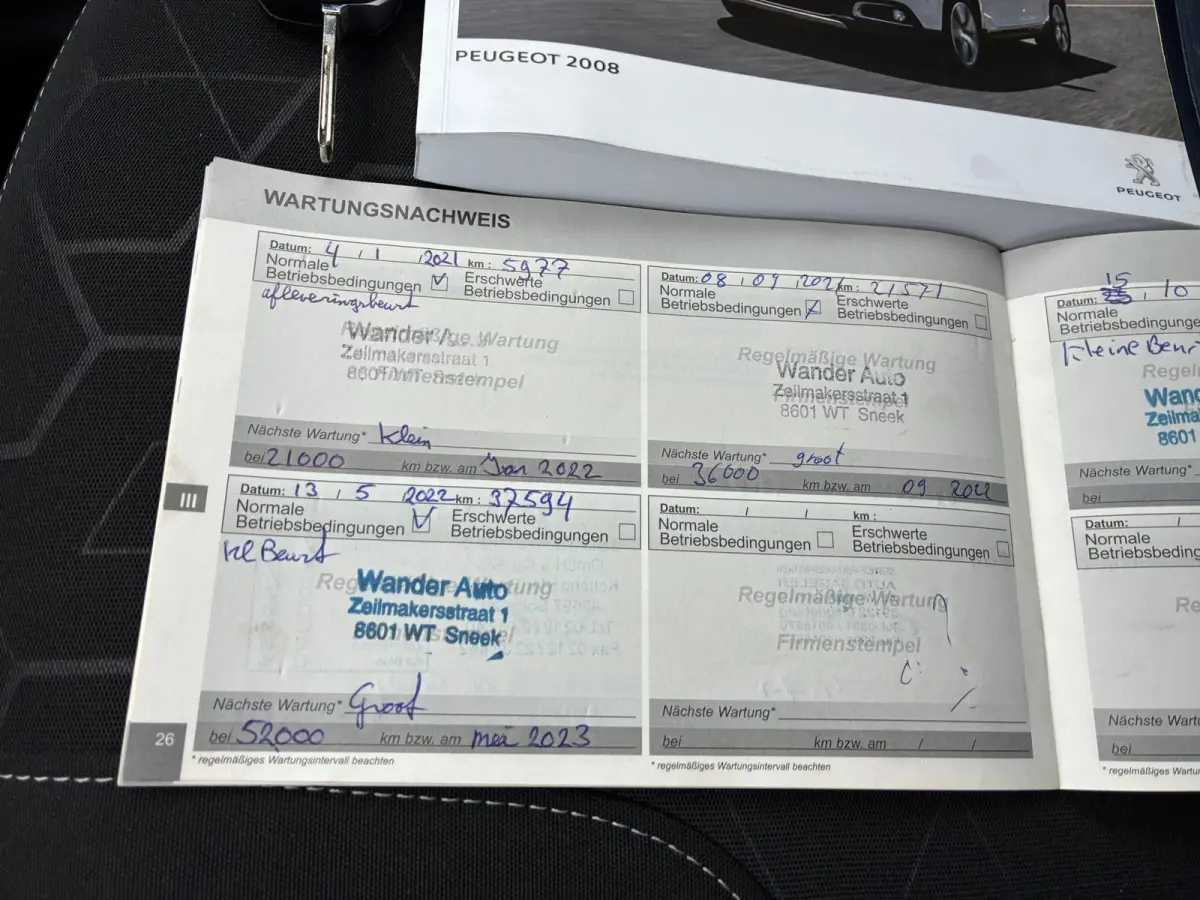 PEUGEOT 2008
PEUGEOT
WARTUNGSNACHWEIS
Datum: 4 / 1 / 2021 km: 5977
Normale Betriebsbedingungen
Erschwerte Betriebsbedingungen
afleveringsbeurt
Regelmäßige Wartung
Wander
Zeilmakersstraat 1
8601 WT Sneek
Firmenstempel
Nächste Wartung* Klein
bei 21000 km bzw. am Jan 2022
Datum: 08 / 09 / 2021 km: 21571
Normale Betriebsbedingungen
Erschwerte Betriebsbedingungen
Regelmäßige Wartung
Wander Auto
Zeilmakersstraat 1
Firmenstempel
8601 WT Sneek
Nächste Wartung* groot
bei 36000 km bzw. am 09 2022
III
Datum: 13 / 5 / 2022 km: 37594
Normale Betriebsbedingungen
Erschwerte Betriebsbedingungen
Kl Beurt
Wander Auto
Zeilmakersstraat 1
8601 WT Sneek
Nächste Wartung* Groot
bei 52000 km bzw. am mei 2023
* regelmäßiges Wartungsintervall beachten
26
Datum: / / km:
Normale Betriebsbedingungen
Erschwerte Betriebsbedingungen
Regelmäßige Wartung
Firmenstempel
Nächste Wartung*
bei km bzw. am / /
* regelmäßiges Wartungsintervall beachten
Datum: 15 / 10
Normale
Betriebsbedingungen
Kleine Beur
Rege
Wand
Zeilma
8601
Nächste Wartung*
bei
Datum:
Normale
Betriebsbedingung
Re
Nächste Wartung*
bei
* regelmäßiges Wartu